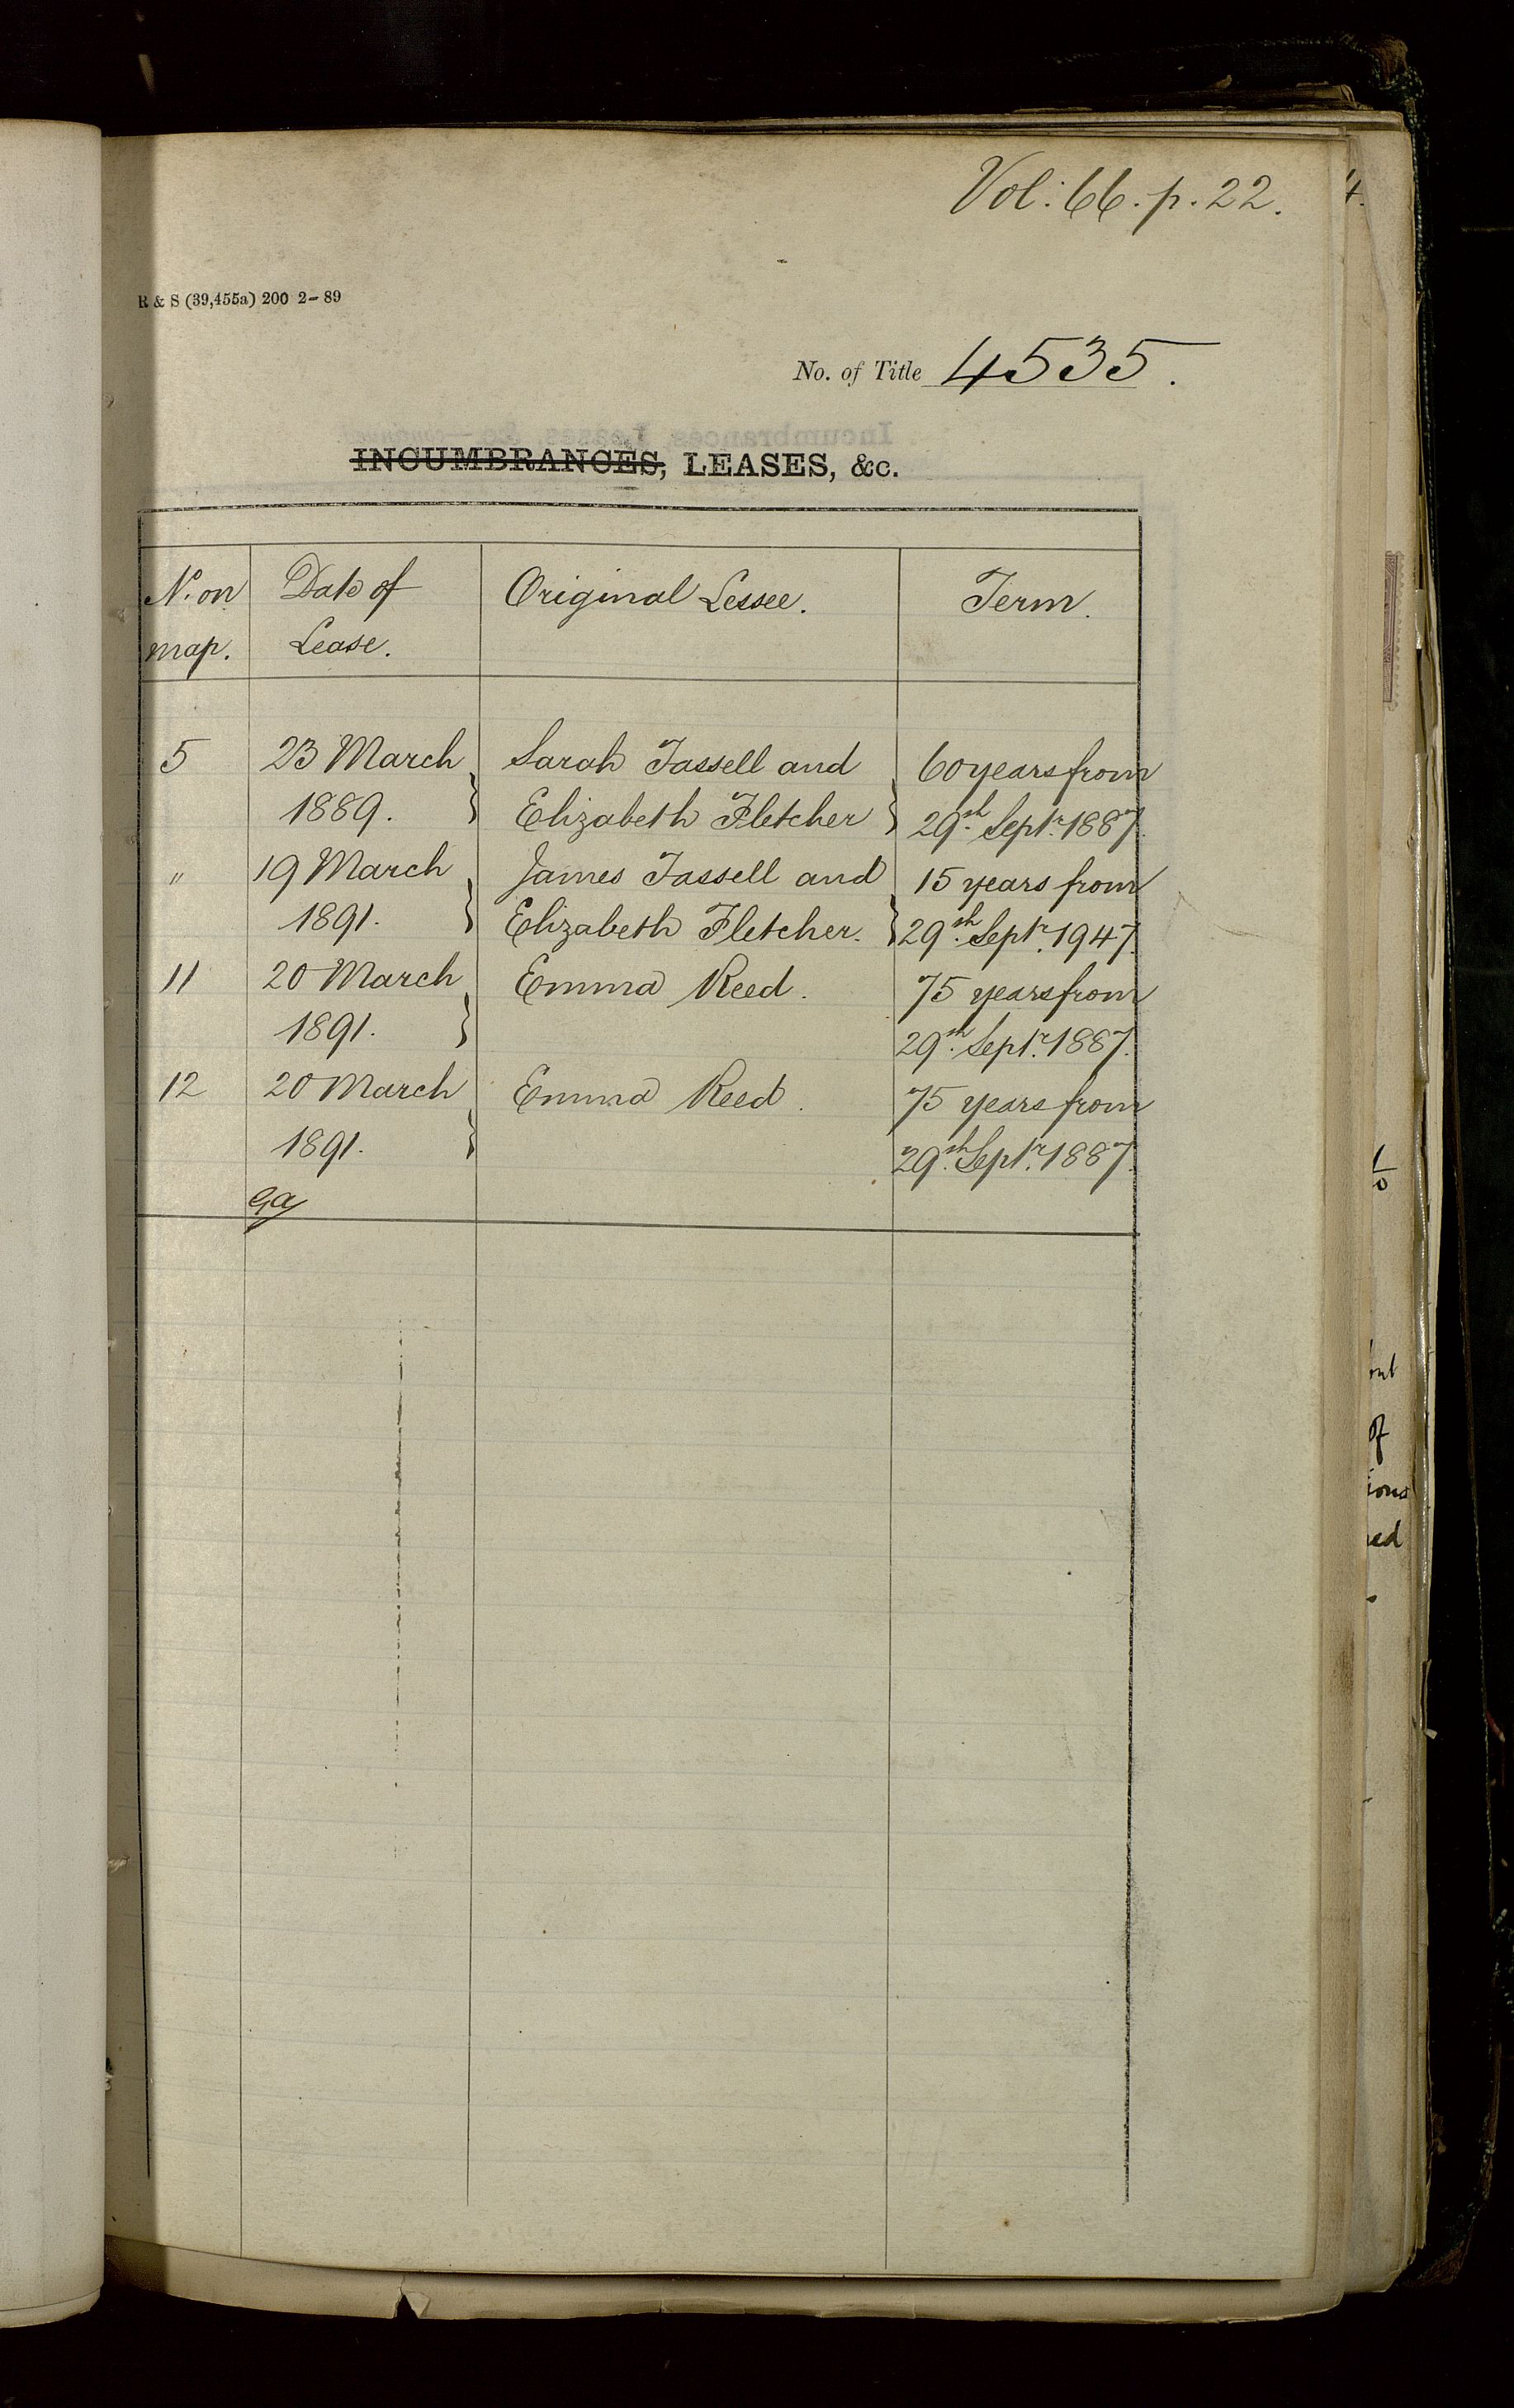 Vol: 66. p. 22.
R & S (39,455a) 200 2-89
No. of Title 4535.
INCUMBRANCES, LEASES, &c.
No. on map. Date of Lease. Original Lessee. Term.
5 23 March Sarah Tassell and 60 years from
1889. Elizabeth Fletcher 29th. Septr. 1887.
" 19 March James Tassell and 15 years from
1891. Elizabeth Fletcher. 29th. Septr. 1947.
11 20 March Emma Reed. 75 years from
1891. 29th. Septr. 1887.
12 20 March Emma Reed. 75 years from
1891. 29th. Septr. 1887.